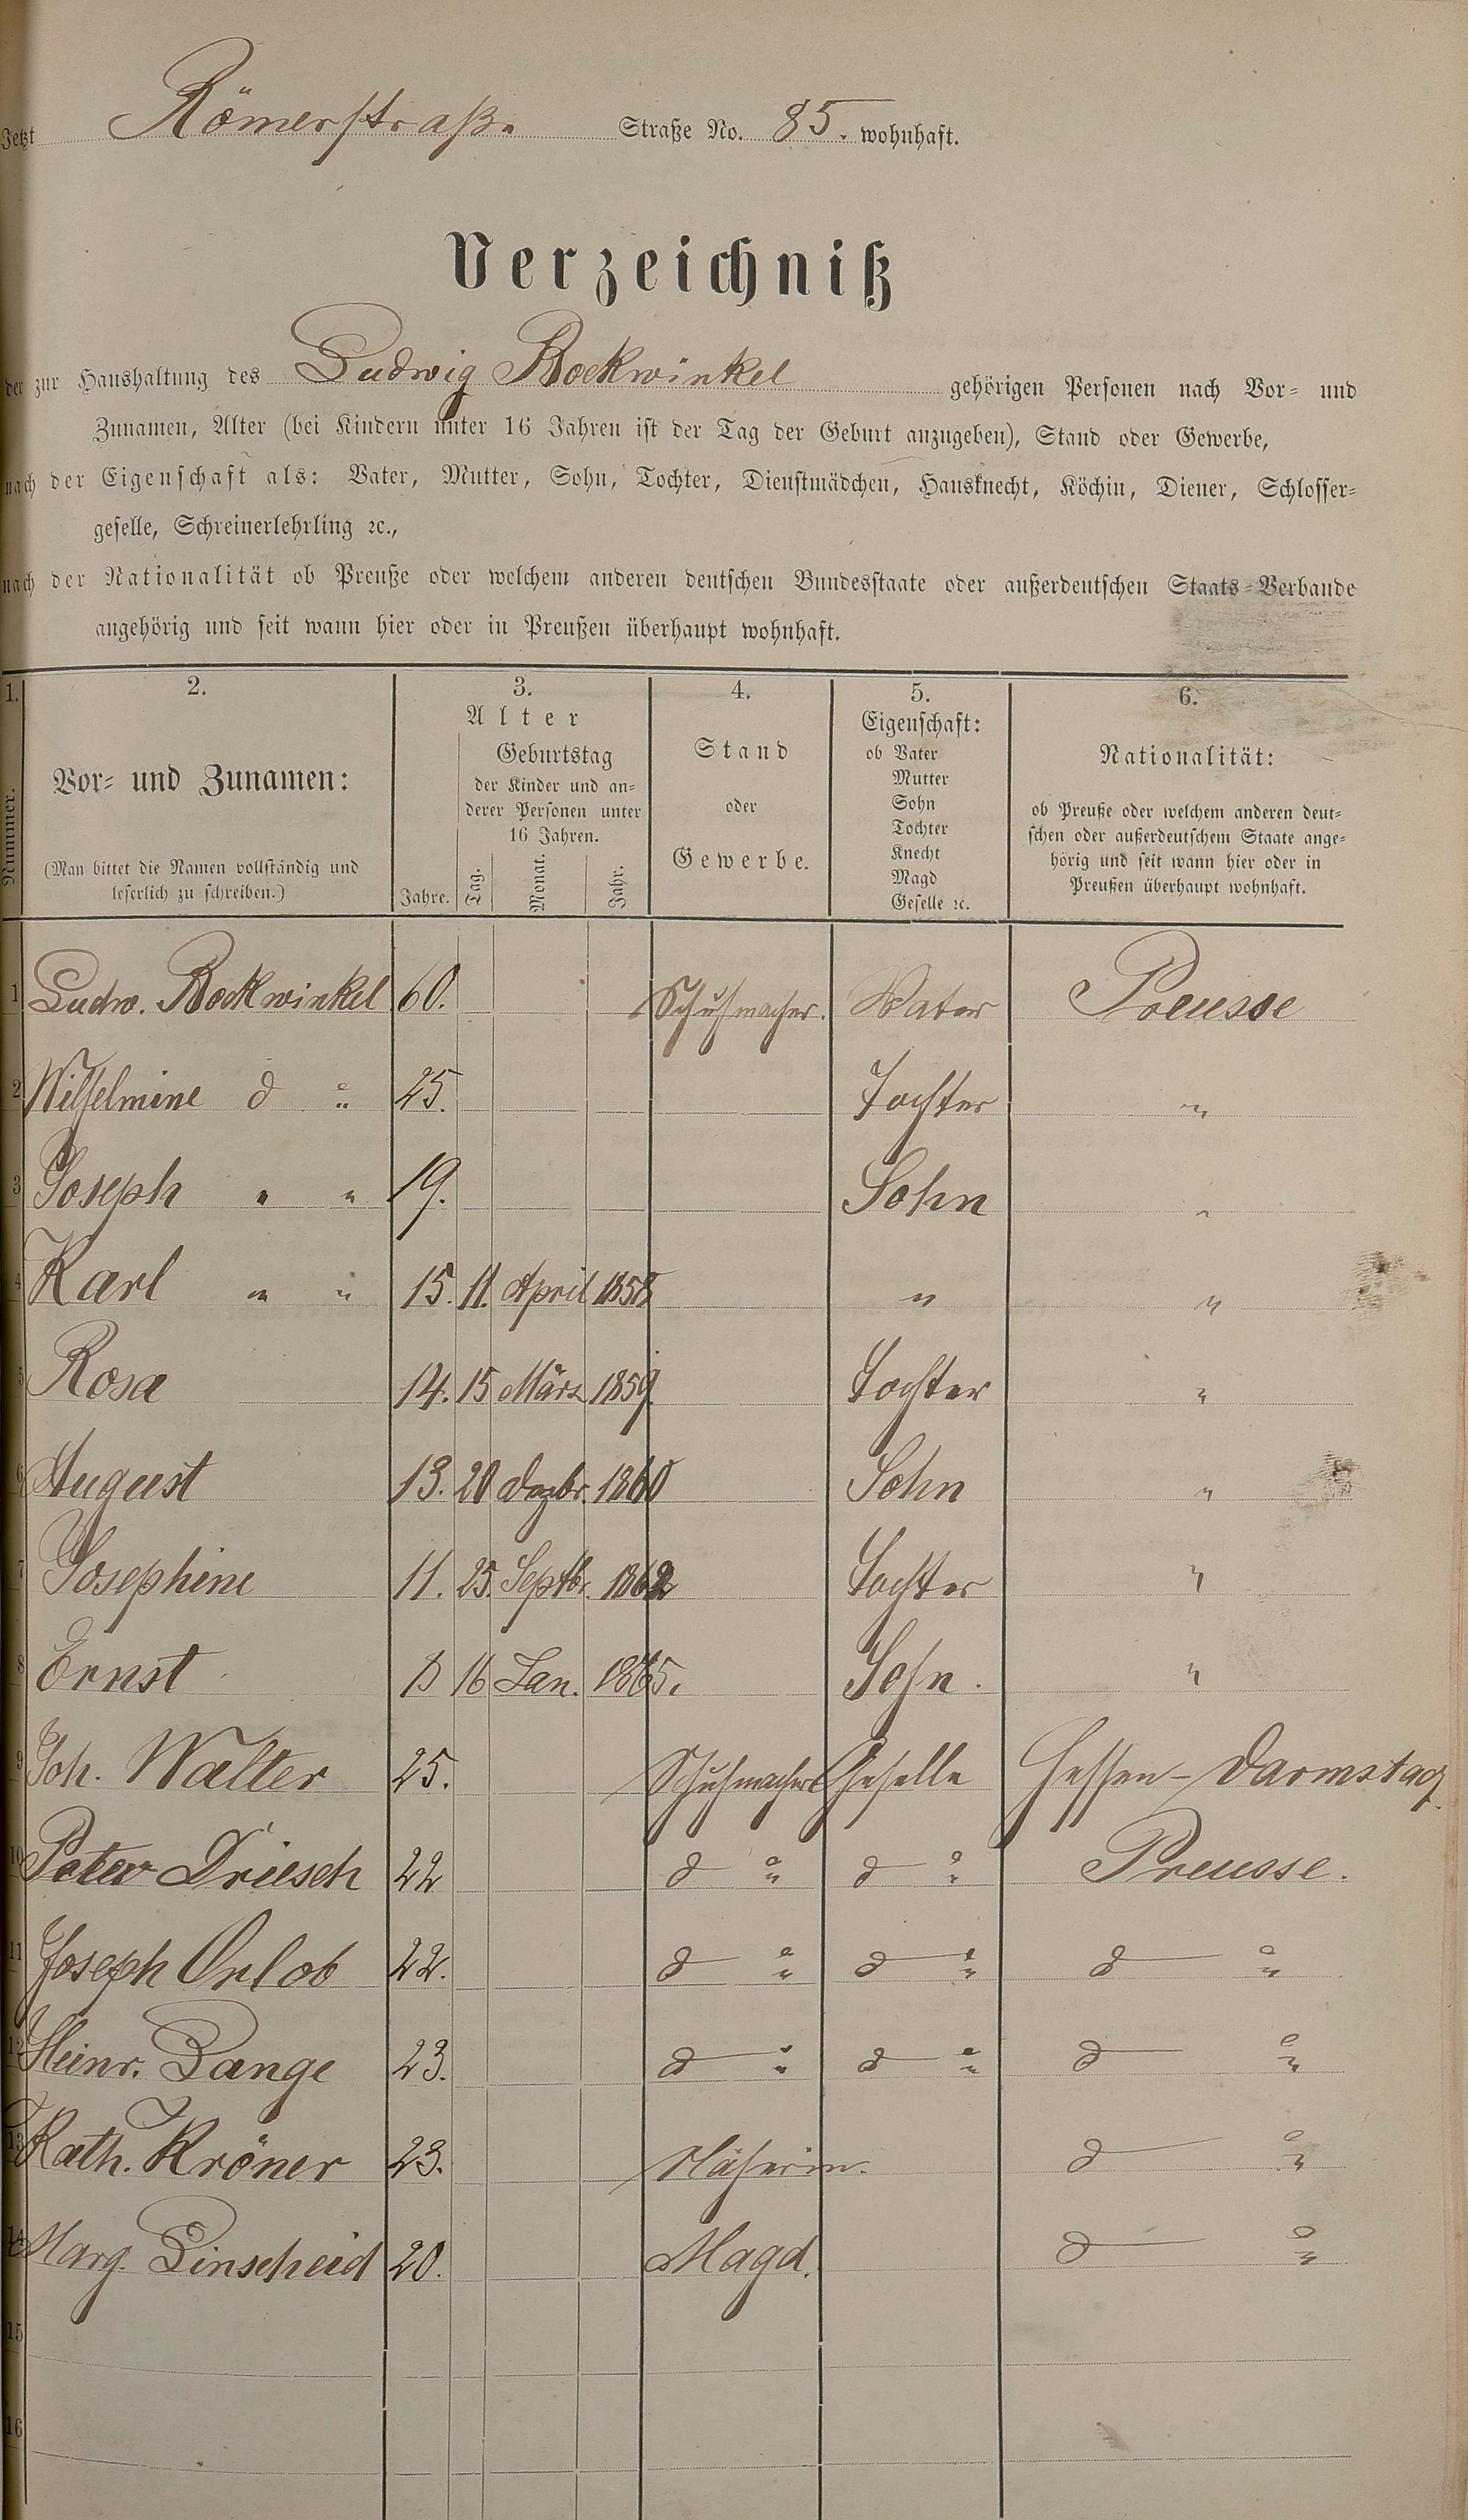 Jetzt Römerstraße Straße No. 85. wohnhaft.
Verzeichniß
der zur Haushaltung des Ludwig Bockwinkel gehörigen Personen nach Vor- und
Zunamen, Alter (bei Kindern unter 16 Jahren ist der Tag der Geburt anzugeben), Stand oder Gewerbe,
nach der Eigenschaft als: Vater, Mutter, Sohn, Tochter, Dienstmädchen, Hausknecht, Köchin, Diener, Schlosser-
geselle, Schreinerlehrling ꝛc.,
nach der Nationalität ob Preuße oder welchem anderen deutschen Bundesstaate oder außerdeutschen Staats-Verbande
angehörig und seit wann hier oder in Preußen überhaupt wohnhaft.
1. 2. 3. 4. 5. 6.
Nummer.
Vor- und Zunamen:
(Man bittet die Namen vollständig und
leserlich zu schreiben.)
Alter
Geburtstag
der Kinder und an-
derer Personen unter
16 Jahren.
Jahre. Tag. Monat. Jahr.
Stand
oder
Gewerbe.
Eigenschaft:
ob Vater
Mutter
Sohn
Tochter
Knecht
Magd
Geselle ꝛc.
Nationalität:
ob Preuße oder welchem anderen deut-
schen oder außerdeutschem Staate ange-
hörig und seit wann hier oder in
Preußen überhaupt wohnhaft.
1 Ludw. Bockwinkel 60. Schuhmacher. Vater Preusse
2 Wilhelmine do " 25. Tochter "
3 Joseph " " 19. Sohn "
4 Karl " " 15. 11. April 1858 " "
5 Rosa 14. 15 März 1859 Tochter "
6 August 13. 20 Dezbr. 1860 Sohn "
7 Josephine 11. 25. Septbr. 1862 Tochter "
8 Ernst 16 Jan. 1865. Sohn. "
9 Joh. Walter 25. Schuhmacher Geselle Hessen-Darmstadt
10 Peter Driesch 22 do " do " Preusse.
11 Joseph Orlob 22. do " do " do "
12 Heinr. Lange 23. do " do " do "
13 Kath. Kröner 23. Näherin. do "
14 Marg. Linscheid 20. Magd. do "
15
16